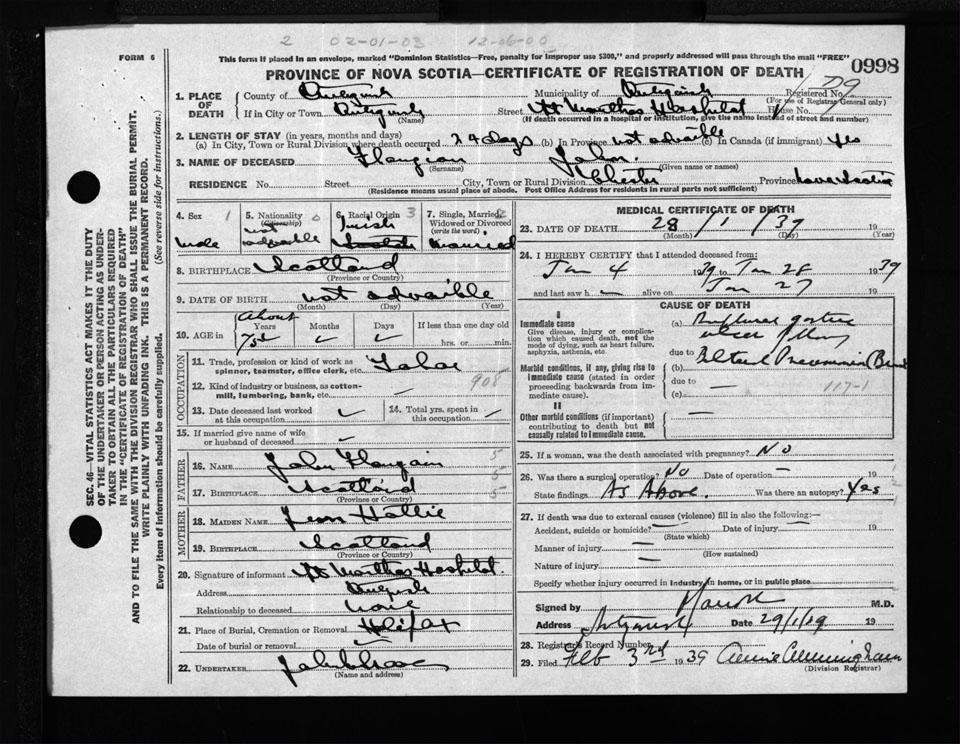 2 02-01-03 12-06-00
FORM 6
This form if placed in an envelope, marked "Dominion Statistics—Free, penalty for improper use $300," and properly addressed will pass through the mail "FREE"
0998
PROVINCE OF NOVA SCOTIA—CERTIFICATE OF REGISTRATION OF DEATH
SEC. 46—VITAL STATISTICS ACT MAKES IT THE DUTY
OF THE UNDERTAKER OR PERSON ACTING AS UNDER-
TAKER TO OBTAIN ALL THE PARTICULARS REQUIRED
IN THE "CERTIFICATE OF REGISTRATION OF DEATH"
AND TO FILE THE SAME WITH THE DIVISION REGISTRAR WHO SHALL ISSUE THE BURIAL PERMIT.
WRITE PLAINLY WITH UNFADING INK. THIS IS A PERMANENT RECORD.
(See reverse side for instructions.)
Every item of information should be carefully supplied.
1. PLACE OF DEATH
County of Antigonish Municipality of Antigonish Registered No. 79
(For use of Registrar General only)
If in City or Town Antigonish Street St Marthas Hospital House No.
(Name) (If death occurred in a hospital or institution, give the name instead of street and number)
2. LENGTH OF STAY (in years, months and days)
(a) In City, Town or Rural Division where death occurred 24 days (b) In Province not advisible (c) In Canada (if immigrant) yes
3. NAME OF DECEASED John.
(Surname) (Given name or names)
RESIDENCE No. Street City, Town or Rural Division Chester Province Nova Scotia
(Residence means usual place of abode. Post Office Address for residents in rural parts not sufficient)
4. Sex 1 Male
5. Nationality 0 (Citizenship) not advisible
6. Racial Origin 3 Irish
7. Single, Married, Widowed or Divorced (write the word) Married
8. BIRTHPLACE Scotland
(Province or County)
9. DATE OF BIRTH not advisible
(Month) (Day) (Year)
10. AGE in About Years Months Days If less than one day old
hrs. or min.
OCCUPATION
11. Trade, profession or kind of work as
spinner, teamster, office clerk, etc. Labor
12. Kind of industry or business, as cotton-
mill, lumbering, bank, etc. 908
13. Date deceased last worked
at this occupation
14. Total yrs. spent in
this occupation
15. If married give name of wife
or husband of deceased
FATHER
16. NAME John 5
17. BIRTHPLACE Scotland 5
(Province or Country)
MOTHER
18. MAIDEN NAME Jean Hallie
19. BIRTHPLACE Scotland
(Province or Country)
20. Signature of informant St Marthas Hospital.
Address Antigonish
Relationship to deceased None
21. Place of Burial, Cremation or Removal Halifax
Date of burial or removal
22. UNDERTAKER
(Name and address)
MEDICAL CERTIFICATE OF DEATH
23. DATE OF DEATH 28/1/39 19
(Month) (Day) (Year)
24. I HEREBY CERTIFY that I attended deceased from:
Jan 4 1939 to Jan 28 1939
and last saw h alive on Jan 27 19
CAUSE OF DEATH
I
Immediate cause
Give disease, injury or complica-
tion which caused death, not the
mode of dying, such as heart failure,
asphyxia, asthenia, etc.
(a) Ruptured gastric
ulcer
due to
Morbid conditions, if any, giving rise to
immediate cause (stated in order
proceeding backwards from im-
mediate cause).
(b) Pneumonia
due to
(c) 117-1
II
Other morbid conditions (if important)
contributing to death but not
causally related to immediate cause.
25. If a woman, was the death associated with pregnancy? No
26. Was there a surgical operation? No Date of operation 19
State findings As Above. Was there an autopsy? Yes
27. If death was due to external causes (violence) fill in also the following:—
Accident, suicide or homicide? Date of injury 19
(State which)
Manner of injury
(How sustained)
Nature of injury
Specify whether injury occurred in industry, in home, or in public place
Signed by M.D.
Address Antigonish Date 29/1/39 19
28. Registrar's Record Number
29. Filed Feb 3rd 1939 Annie Cunningham
(Division Registrar)